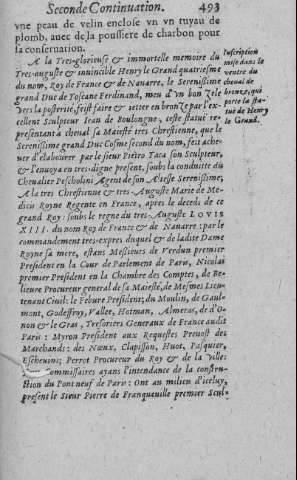 Seconde Continuation. 493
vne peau de velin enclose vn vn tuyau de
plomb, auec de la poussiere de charbon pour
sa conseruation.
A la Tres-glorieuse & immortelle memoire du
Tres-auguste & inuincible Henry le Grand quatriesme
du nom, Roy de France & de Nauarre, le Serenissime
grand Duc de Toscane Ferdinand, meu d'vn bon zele
vers la posterité, feist faire & ietter en bronze par l'ex-
cellent Sculpteur Iean de Boulongne, ceste statuë re-
presentant à cheual sa Maiesté tres Chrestienne, que le
Serenissime grand Duc Cosme second du nom, feit ache-
uer d'elabourer par le sieur Pietro Taca son Sculpteur,
& l'enuoya en tres-digne present, soubs la conduitte du
Cheualier Pescholini Agent de son Altesse Serenissime,
A la tres Chrestienne & tres-Auguste Marie de Me-
dicis Royne Regente en France, apres le decedz de ce
grand Roy : soubs le regne du tres-Auguste LOVIS
XIII. du nom Roy de France & de Nauarre : par le
commandement tres-expres duquel & de ladite Dame
Royne sa mere, estans Messieurs de Verdun premier
President en la Cour de Parlement de Paris, Nicolas
premier President en la Chambre des Comptes, de Be-
lieure Procureur general de sa Maiesté, de Mesmes Lieu-
tenant Ciuil : le Febure President, du Moulin, de Gaul-
mont, Godeffroy, Vallee, Hotman, Almeras, de d'O-
non & le Gras, Tresoriers Generaux de France audit
Paris : Myron President aux Requestes Preuost des
Marchands : des Nœux, Clapisson, Huot, Pasquier,
Escheuins; Perrot Procureur du Roy & de la Ville:
Commissaires ayans l'intendance de la constru-
ction du Pont neuf de Paris : Ont au milieu d'iceluy,
present le Sieur Pierre de Franqueuille premier Scul-
Inscription
mise dans le
ventre du
cheual de
bronze, qui
porte la sta-
tue de Henry
le Grand.